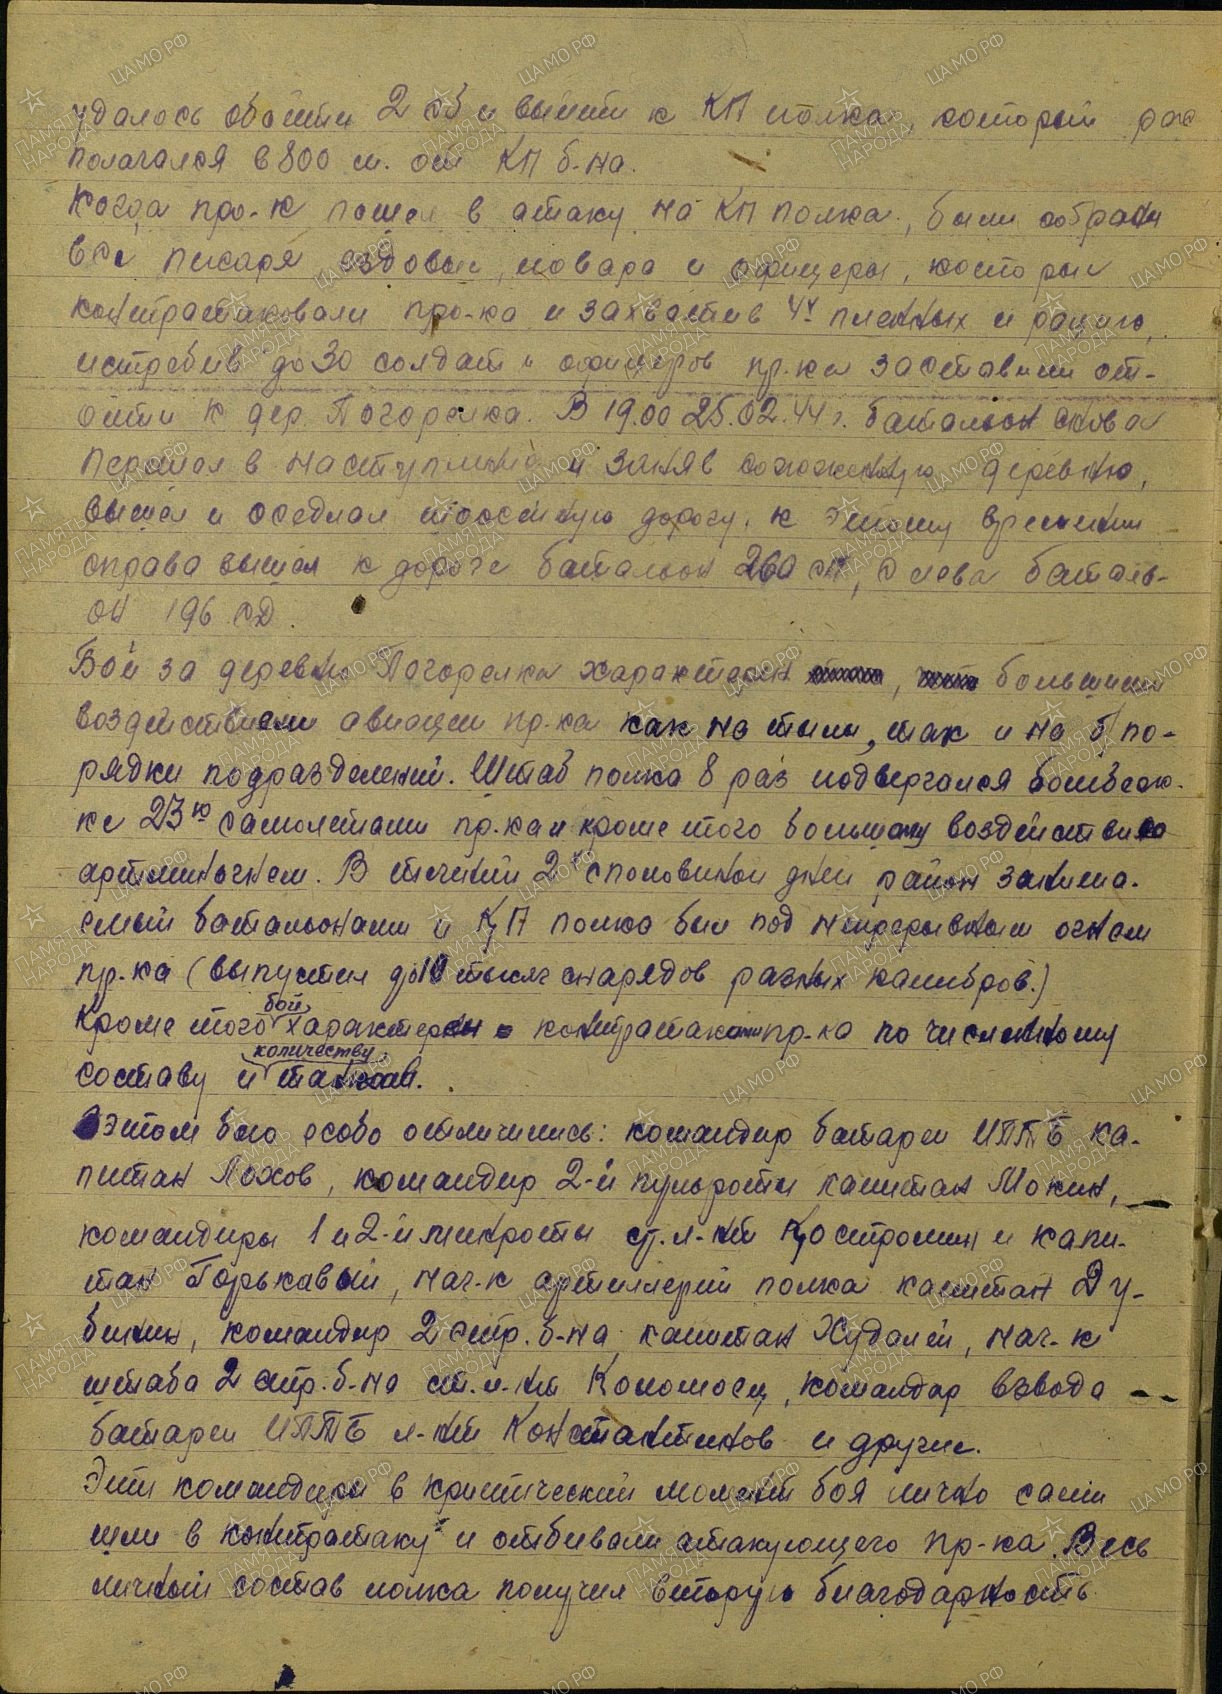 удалось обойти 2 сб и выйти к КП полка, который рас
полагался в 800 м. от КП б-на.
Когда пр-к пошел в атаку на КП полка, были собраны
все писаря ездовые, повара и офицеры, которые
контратаковали пр-ка и захватив 4х пленных и рацию,
истребив до 30 солдат и офицеров пр-ка заставили от-
ойти к дер. Погорелка. В 19.00 25.02.44 г. батальон снова
перешел в наступление и заняв сожженную деревню,
вышел и оседлал шоссейную дорогу, к этому времени
справа вышел к дороге батальон 260 сп, слева баталь-
он 196 СД.
Бой за деревню Погорелка характерен , большим
воздействием авиации пр-ка как на тылы, так и на б/по-
рядки подразделений. Штаб полка 8 раз подвергался бомбеж-
ке 23ю самолетами пр-ка и кроме того большому воздействию
артминогнем. В течении 2й половины дня район занима-
емый батальонами и КП полка был под непрерывным огнем
пр-ка (выпустил до 10 тысяч снарядов разных калибров.)
Кроме того бой характерен контратаками пр-ка по численному
составу и количеству танков.
В этом бою особо отличились: командир батареи ИПТБ ка-
питан Лохов, командир 2-й пульроты капитан Мокин,
командиры 1 и 2-й минроты ст. л-нт Костромин и капи-
тан Горькавый, нач-к артиллерии полка капитан Ду-
бинин, командир 2 стр. б-на капитан Худалей, нач-к
штаба 2 стр. б-на ст. л-нт Коломоец, командир взвода
батареи ИПТБ л-нт Константинов и другие.
Эти командиры в критический момент боя лично сами
шли в контратаку и отбивали атакующего пр-ка. Весь
личный состав полка получил вторую благодарность
ЦАМО РФ
ПАМЯТЬ НАРОДА